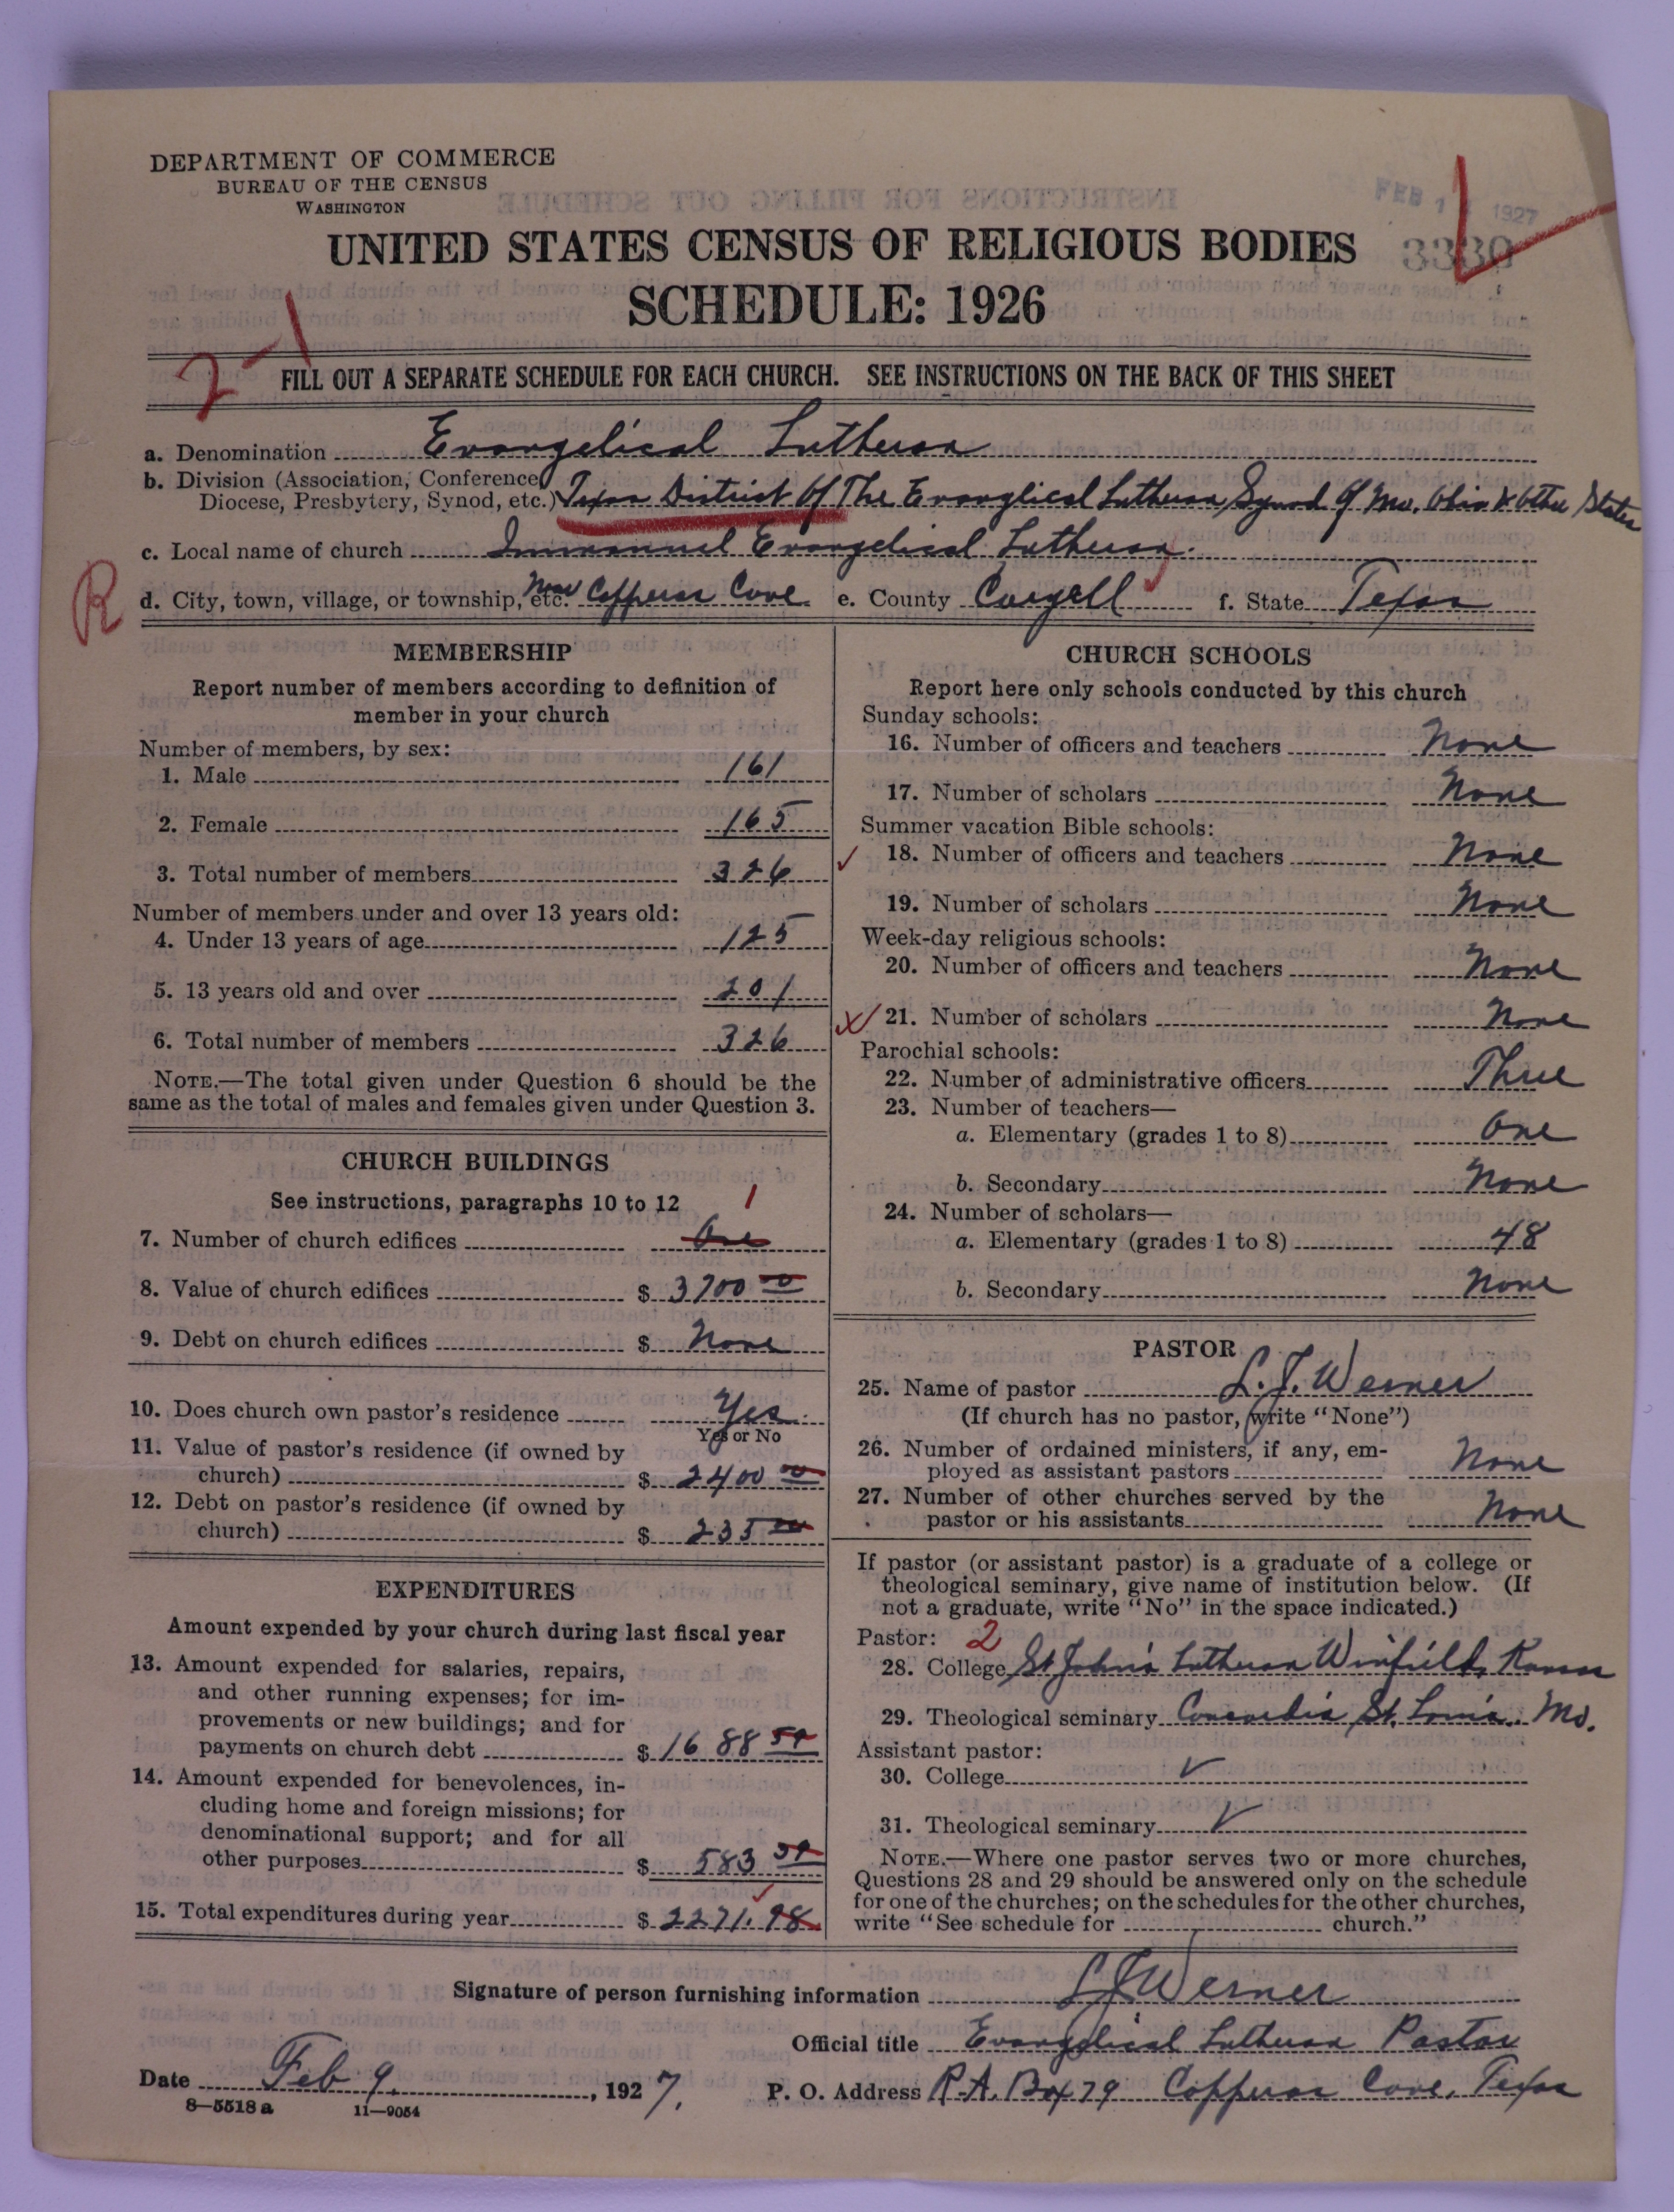 DEPARTMENT OF COMMERCE
BUREAU OF THE CENSUS
WASHINGTON
FEB 1 1927
3330
UNITED STATES CENSUS OF RELIGIOUS BODIES
SCHEDULE: 1926
2-1
FILL OUT A SEPARATE SCHEDULE FOR EACH CHURCH. SEE INSTRUCTIONS ON THE BACK OF THIS SHEET
a. Denomination Evangelical Lutheran
b. Division (Association, Conference,
Diocese, Presbytery, Synod, etc.) Texas District of The Evanglical Lutheran Synod of Mo. Ohio & Other States
c. Local name of church Immanuel Evangelical Lutheran.
R
d. City, town, village, or township, etc. Near Copperas Cove e. County Coryell f. State Texas
MEMBERSHIP
Report number of members according to definition of
member in your church
Number of members, by sex:
1. Male 161
2. Female 165
3. Total number of members 326
Number of members under and over 13 years old:
4. Under 13 years of age 125
5. 13 years old and over 201
6. Total number of members 326
NOTE.—The total given under Question 6 should be the
same as the total of males and females given under Question 3.
CHURCH BUILDINGS
See instructions, paragraphs 10 to 12
1
7. Number of church edifices One
8. Value of church edifices $ 3700 00
9. Debt on church edifices $ None
10. Does church own pastor's residence Yes
Yes or No
11. Value of pastor's residence (if owned by
church) $ 2400 00
12. Debt on pastor's residence (if owned by
church) $ 235 00
EXPENDITURES
Amount expended by your church during last fiscal year
13. Amount expended for salaries, repairs,
and other running expenses; for im-
provements or new buildings; and for
payments on church debt $ 1688
14. Amount expended for benevolences, in-
cluding home and foreign missions; for
denominational support; and for all
other purposes $ 583
15. Total expenditures during year $ 2271.98
CHURCH SCHOOLS
Report here only schools conducted by this church
Sunday schools:
16. Number of officers and teachers None
17. Number of scholars None
Summer vacation Bible schools:
18. Number of officers and teachers None
19. Number of scholars None
Week-day religious schools:
20. Number of officers and teachers None
21. Number of scholars None
Parochial schools:
22. Number of administrative officers Three
23. Number of teachers—
a. Elementary (grades 1 to 8) One
b. Secondary None
24. Number of scholars—
a. Elementary (grades 1 to 8) 48
b. Secondary None
PASTOR
25. Name of pastor L. J. Werner
(If church has no pastor, write "None")
26. Number of ordained ministers, if any, em-
ployed as assistant pastors None
27. Number of other churches served by the
pastor or his assistants None
If pastor (or assistant pastor) is a graduate of a college or
theological seminary, give name of institution below. (If
not a graduate, write "No" in the space indicated.)
Pastor: 2
28. College St John's Lutheran Winfield, Kansas
29. Theological seminary Concordia St. Louis. Mo.
Assistant pastor:
30. College
31. Theological seminary
NOTE.—Where one pastor serves two or more churches,
Questions 28 and 29 should be answered only on the schedule
for one of the churches; on the schedules for the other churches,
write "See schedule for church."
Signature of person furnishing information L J Werner
Official title Evangelical Lutheran Pastor
Date Feb 9. , 1927. P. O. Address R.A. Box 79 Copperas Cove, Texas
8—5518 a 11—9054